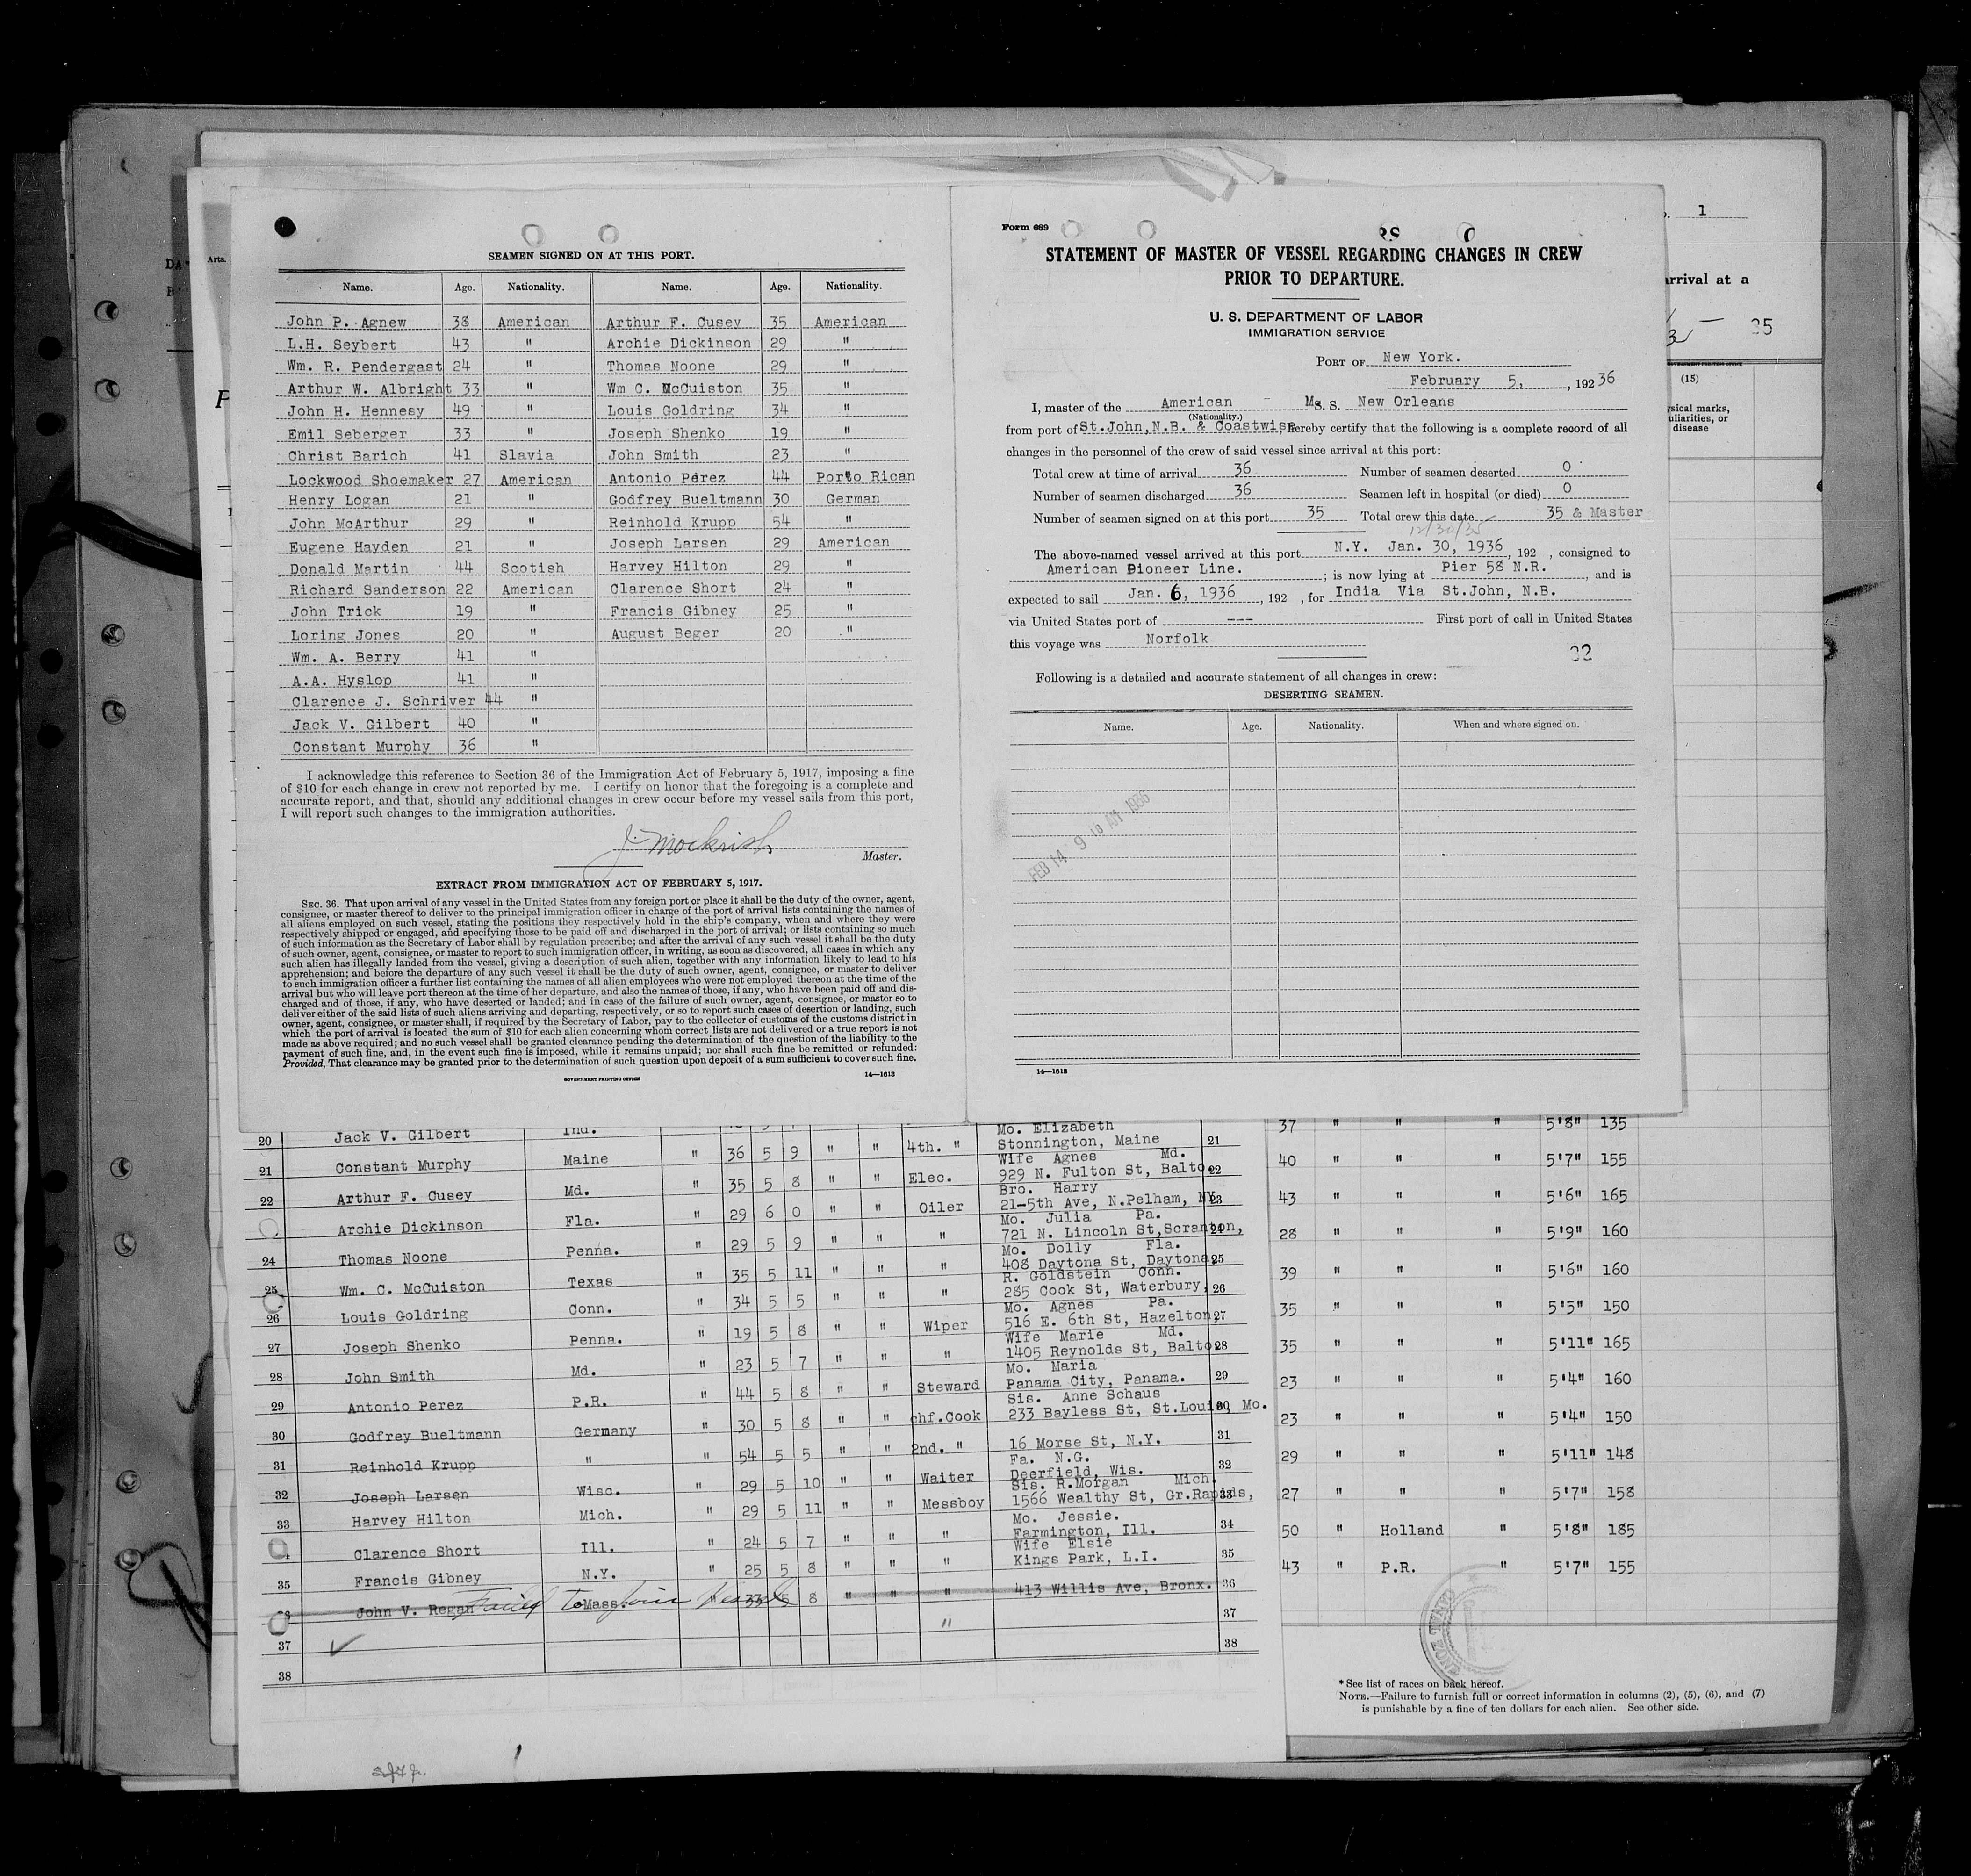 SEAMEN SIGNED ON AT THIS PORT.
Name. Age. Nationality. Name. Age. Nationality.
John P. Agnew 38 American Arthur F. Cusey 35 American
L.H. Seybert 43 " Archie Dickinson 29 "
Wm. R. Pendergast 24 " Thomas Noone 29 "
Arthur W. Albright 33 " Wm C. McCuiston 35 "
John H. Hennesy 49 " Louis Goldring 34 "
Emil Seberger 33 " Joseph Shenko 19 "
Christ Barich 41 Slavia John Smith 23 "
Lockwood Shoemaker 27 American Antonio Perez 44 Porto Rican
Henry Logan 21 " Godfrey Bueltmann 30 German
John McArthur 29 " Reinhold Krupp 54 "
Eugene Hayden 21 " Joseph Larsen 29 American
Donald Martin 44 Scotish Harvey Hilton 29 "
Richard Sanderson 22 American Clarence Short 24 "
John Trick 19 " Francis Gibney 25 "
Loring Jones 20 " August Beger 20 "
Wm. A. Berry 41 "
A.A. Hyslop 41 "
Clarence J. Schriver 44 "
Jack V. Gilbert 40 "
Constant Murphy 36 "
I acknowledge this reference to Section 36 of the Immigration Act of February 5, 1917, imposing a fine
of $10 for each change in crew not reported by me. I certify on honor that the foregoing is a complete and
accurate report, and that, should any additional changes in crew occur before my vessel sails from this port,
I will report such changes to the immigration authorities.
Master.
EXTRACT FROM IMMIGRATION ACT OF FEBRUARY 5, 1917.
SEC. 36. That upon arrival of any vessel in the United States from any foreign port or place it shall be the duty of the owner, agent,
consignee, or master thereof to deliver to the principal immigration officer in charge of the port of arrival lists containing the names of
all aliens employed on such vessel, stating the positions they respectively hold in the ship's company, when and where they were
respectively shipped or engaged, and specifying those to be paid off and discharged in the port of arrival; or lists containing so much
of such information as the Secretary of Labor shall by regulation prescribe; and after the arrival of any such vessel it shall be the duty
of such owner, agent, consignee, or master to report to such immigration officer, in writing, as soon as discovered, all cases in which any
such alien has illegally landed from the vessel, giving a description of such alien, together with any information likely to lead to his
apprehension; and before the departure of any such vessel it shall be the duty of such owner, agent, consignee, or master to deliver
to such immigration officer a further list containing the names of all alien employees who were not employed thereon at the time of the
arrival but who will leave port thereon at the time of her departure, and also the names of those, if any, who have been paid off and dis-
charged and of those, if any, who have deserted or landed; and in case of the failure of such owner, agent, consignee, or master so to
deliver either of the said lists of such aliens arriving and departing, respectively, or so to report such cases of desertion or landing, such
owner, agent, consignee, or master shall, if required by the Secretary of Labor, pay to the collector of customs of the customs district in
which the port of arrival is located the sum of $10 for each alien concerning whom correct lists are not delivered or a true report is not
made as above required; and no such vessel shall be granted clearance pending the determination of the question of the liability to the
payment of such fine, and, in the event such fine is imposed, while it remains unpaid; nor shall such fine be remitted or refunded:
Provided, That clearance may be granted prior to the determination of such question upon deposit of a sum sufficient to cover such fine.
GOVERNMENT PRINTING OFFICE 14—1613
Form 689
STATEMENT OF MASTER OF VESSEL REGARDING CHANGES IN CREW
PRIOR TO DEPARTURE.
U. S. DEPARTMENT OF LABOR
IMMIGRATION SERVICE
PORT OF New York.
February 5, , 192 36
I, master of the American - M.S. S. New Orleans
(Nationality.)
from port of St.John,N.B. & Coastwise, hereby certify that the following is a complete record of all
changes in the personnel of the crew of said vessel since arrival at this port:
Total crew at time of arrival 36 Number of seamen deserted 0
Number of seamen discharged 36 Seamen left in hospital (or died) 0
Number of seamen signed on at this port 35 Total crew this date 35 & Master
12/30/35
The above-named vessel arrived at this port N.Y. Jan. 30, 1936, 192 , consigned to
American Pioneer Line. ; is now lying at Pier 58 N.R. , and is
expected to sail Jan. 6, 1936 , 192 , for India Via St.John, N.B.
via United States port of --- First port of call in United States
this voyage was Norfolk
32
Following is a detailed and accurate statement of all changes in crew:
DESERTING SEAMEN.
Name. Age. Nationality. When and where signed on.
FEB 14 9 16 AM 1936
14—1613
1
arrival at a
35
(15)
sical marks,
uliarities, or
disease
Arts.
20 Jack V. Gilbert Ind.
Mo. Elizabeth
21 Constant Murphy Maine " 36 5 9 " " 4th. " Stonnington, Maine 21
Wife Agnes Md.
22 Arthur F. Cusey Md. " 35 5 8 " " Elec. 929 N. Fulton St, Balto. 22
Bro. Harry
Archie Dickinson Fla. " 29 6 0 " " Oiler 21-5th Ave, N.Pelham, NY 23
Mo. Julia Pa.
24 Thomas Noone Penna. " 29 5 9 " " " 721 N. Lincoln St,Scranton, 24
Mo. Dolly Fla.
25 Wm. C. McCuiston Texas " 35 5 11 " " " 408 Daytona St, Daytona, 25
R. Goldstein Conn.
26 Louis Goldring Conn. " 34 5 5 " " " 285 Cook St, Waterbury, 26
Mo. Agnes Pa.
27 Joseph Shenko Penna. " 19 5 8 " " Wiper 516 E. 6th St, Hazelton, 27
Wife Marie Md.
28 John Smith Md. " 23 5 7 " " " 1405 Reynolds St, Balto. 28
Mo. Maria
29 Antonio Perez P.R. " 44 5 8 " " Steward Panama City, Panama. 29
Sis. Anne Schaus
30 Godfrey Bueltmann Germany " 30 5 8 " " chf.Cook 233 Bayless St, St.Louis, Mo. 30
31 Reinhold Krupp " " 54 5 5 " " 2nd. " 16 Morse St, N.Y. 31
Fa. N.G.
32 Joseph Larsen Wisc. " 29 5 10 " " Waiter Deerfield, Wis. 32
Sis. R.Morgan Mich.
33 Harvey Hilton Mich. " 29 5 11 " " Messboy 1566 Wealthy St, Gr.Rapids, 33
Mo. Jessie.
Clarence Short Ill. " 24 5 7 " " " Farmington, Ill. 34
Wife Elsie
35 Francis Gibney N.Y. " 25 5 8 " " " Kings Park, L.I. 35
John V. Regan Mass. 33 5 8 " " " 413 Willis Ave, Bronx. 36
Failed to join vessel
37 " 37
38 38
37 " " " 5'8" 135
40 " " " 5'7" 155
43 " " " 5'6" 165
28 " " " 5'9" 160
39 " " " 5'6" 160
35 " " " 5'5" 150
35 " " " 5'11" 165
23 " " " 5'4" 160
23 " " " 5'4" 150
29 " " " 5'11" 148
27 " " " 5'7" 158
50 " Holland " 5'8" 185
43 " P.R. " 5'7" 155
*See list of races on back hereof.
NOTE.—Failure to furnish full or correct information in columns (2), (5), (6), and (7)
is punishable by a fine of ten dollars for each alien. See other side.